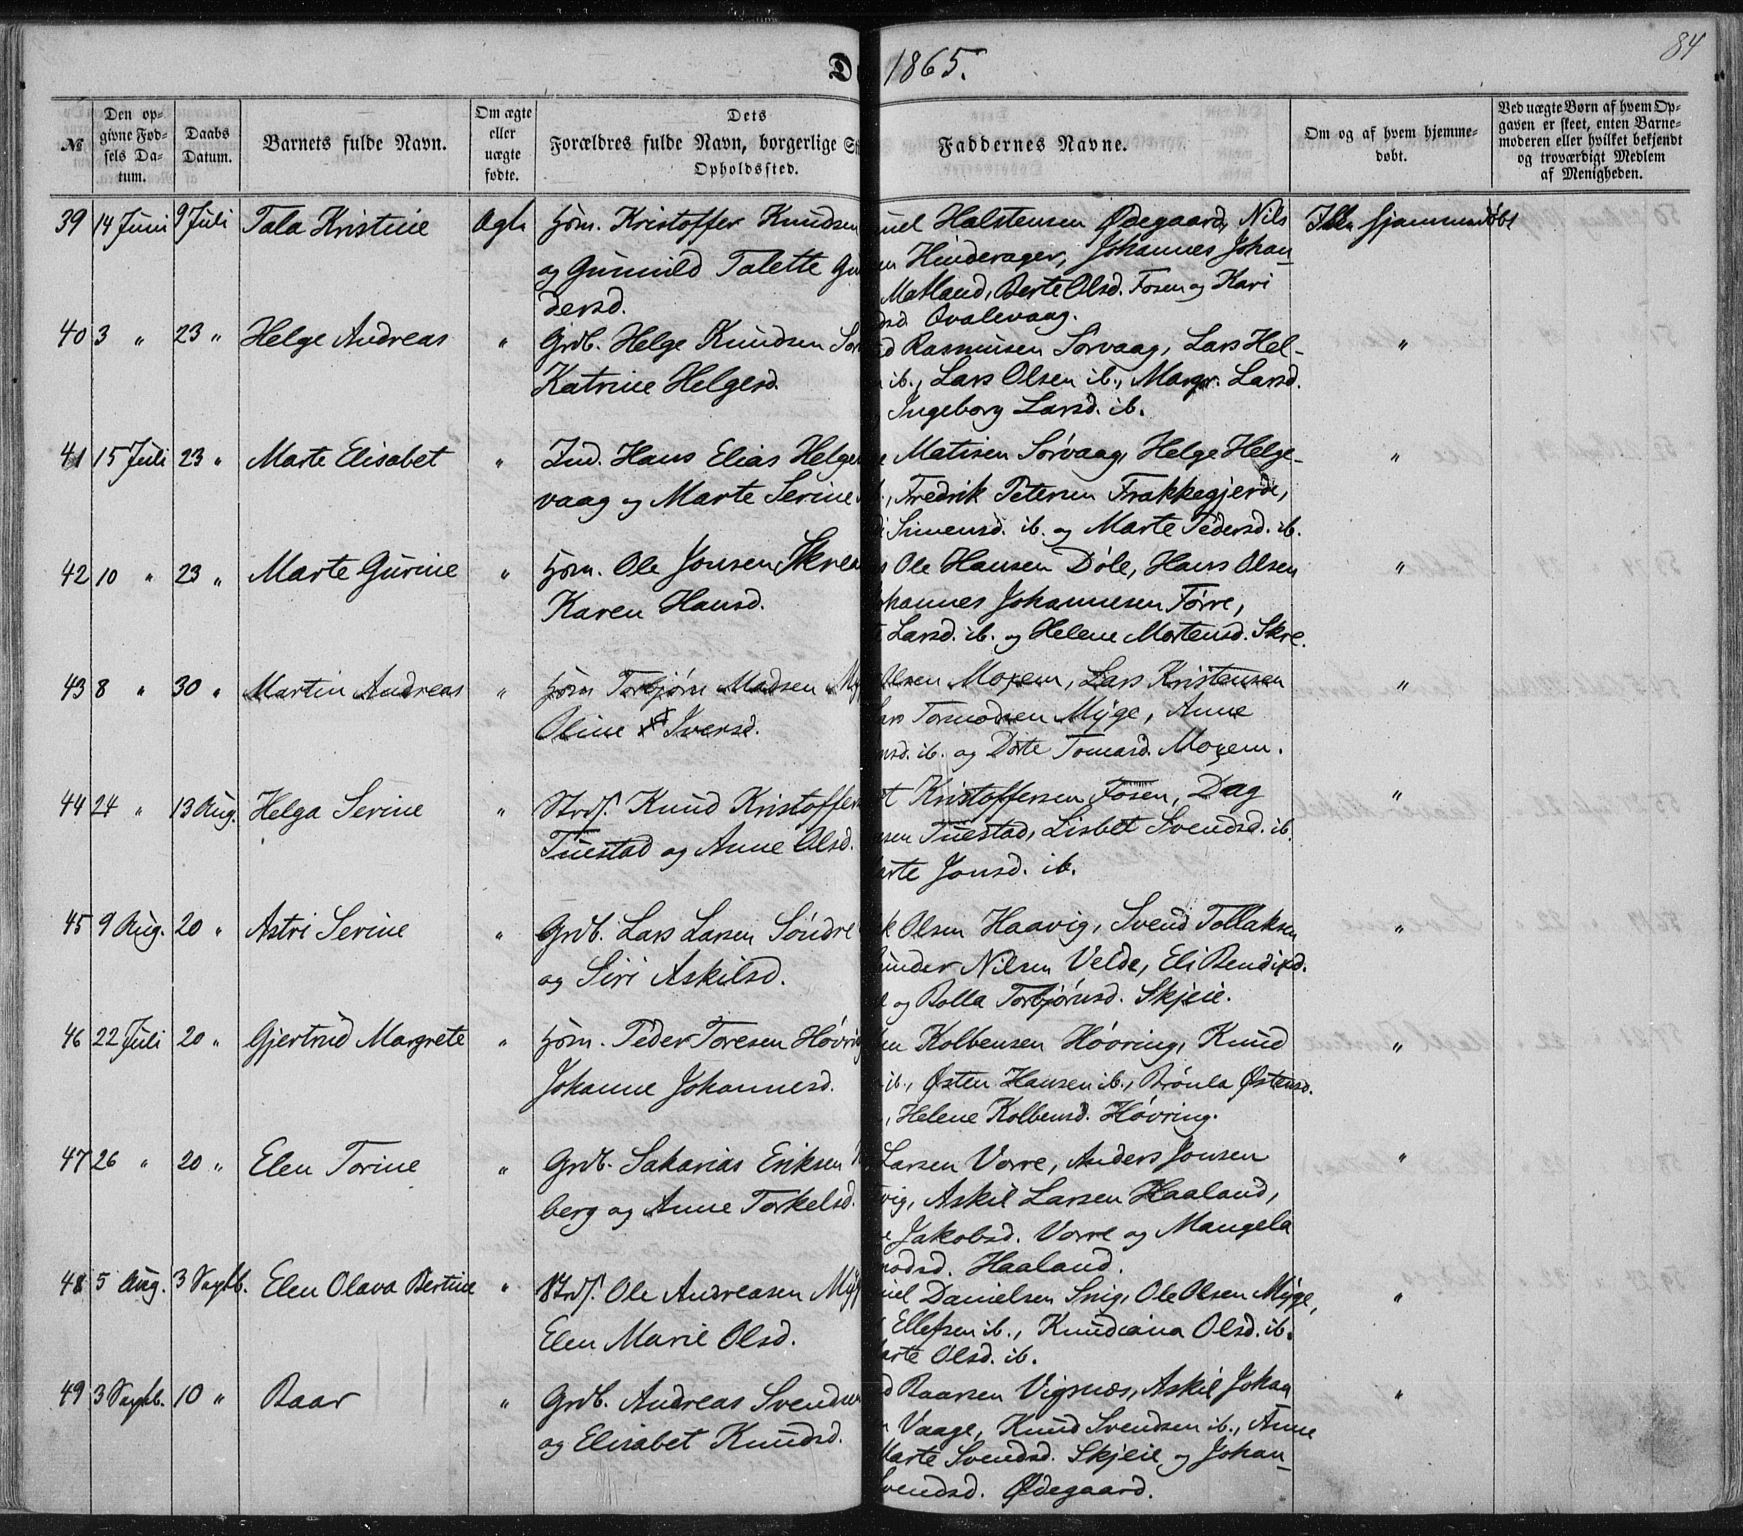 D 1865.
84
№
Den op-
givne Fød-
sels Da-
tum.
Daabs
Datum.
Barnets fulde Navn.
Om ægte
eller
uægte
fødte.
Dets
Forældres fulde Navn, borgerlige St
Opholdssted.
Faddernes Navne.
Om og af hvem hjemme-
døbt.
Ved uægte Børn af hvem Op-
gaven er skeet, enten Barne-
moderen eller hvilket bekjendt
og troværdigt Medlem
af Menigheden.
39 14 Juni 9 Juli Tala Kristine Ægte Hsm. Kristoffer Knudsen
og Gunnild Talette Gun
dersd.
uel Halstensen Ødegaard, Nils
en Hinderager, Johannes Johan-
Matland, Berte Olsd. Fosen og Kari
dsd. Qvalevaag.
Ikke hjemmedøbt
40 3 " 23 " Helge Andreas " Grdb. Helge Knudsen Sør
Katrine Helgesd.
d Rasmusen Sørvaag, Lars Hel-
n ib., Lars Olsen ib., Margr. Larsd.
Ingeborg Larsd. ib.
"
41 15 Juli 23 " Marte Elisabet " Ind. Hans Elias Helge
vaag og Marte Serine
e Matisen Sørvaag, Helge Helge-
b., Fredrik Petersen Frakkegjerde,
Simensd. ib. og Marte Pedersd. ib.
"
42 10 " 23 " Marte Gurine " Hsm. Ole Jonsen Skre
Karen Hansd.
s Ole Hansen Døle, Hans Olsen
ohannes Johannesen Førre,
Larsd. ib. og Helene Mortensd. Skre.
"
43 8 " 30 " Martin Andreas " Hsm. Torbjørn Madsen My
Oline Iversd.
Olsen Moxem, Lars Kristensen
ars Tormodsen Myge, Anne
nsd. ib. og Dorte Tomasd. Moxem.
"
44 24 " 13 Aug. Helga Serine " Strds. Knud Kristoffers
Tuestad og Anne Olsd.
t Kristoffersen Fosen, Dag
nsen Tuestad, Lisbet Svendsd. ib.
arte Jonsd. ib.
"
45 9 Aug. 20 " Astri Serine " Grdb. Lars Larsen Søndre
og Siri Askilsd.
k Olsen Haavig, Svend Tollaksen
under Nilsen Velde, Eli Bendixd.
og Rolla Torbjørnsd. Skjeie.
"
46 22 Juli 20 " Gjertrud Margrete " Hsm. Peder Toresen Høvring
Johanne Johannesd.
en Kolbensen Høvring, Knud
ib., Østen Hansen ib., Brønla Østensd.
, Helene Kolbensd. Høvring.
"
47 26 " 20 " Elen Torine " Grdb. Sakarias Eriksen
berg og Anne Torkelsd.
Larsen Vorre, Anders Jonsen
vig, Askil Larsen Haaland,
e Jakobsd. Vorre og Mangela
modsd. Haaland.
"
48 5 Aug. 3 Septb. Elen Olava Bertine " Strds. Ole Andreasen Myg
Elen Marie Olsd.
iel Danielsen Snig, Ole Olsen Myge,
Ellefsen ib., Knudiana Olsd. ib.
arte Olsd. ib.
"
49 3 Septb. 10 " Baar " Grdb. Andreas Svendsen
og Elisabet Knudsd.
d Baarsen Vigsnes, Askil Johan
n Vaage, Knud Svendsen ib., Anne
Marte Svendsd. Skjeie og Johan-
Svendsd. Ødegaard.
"